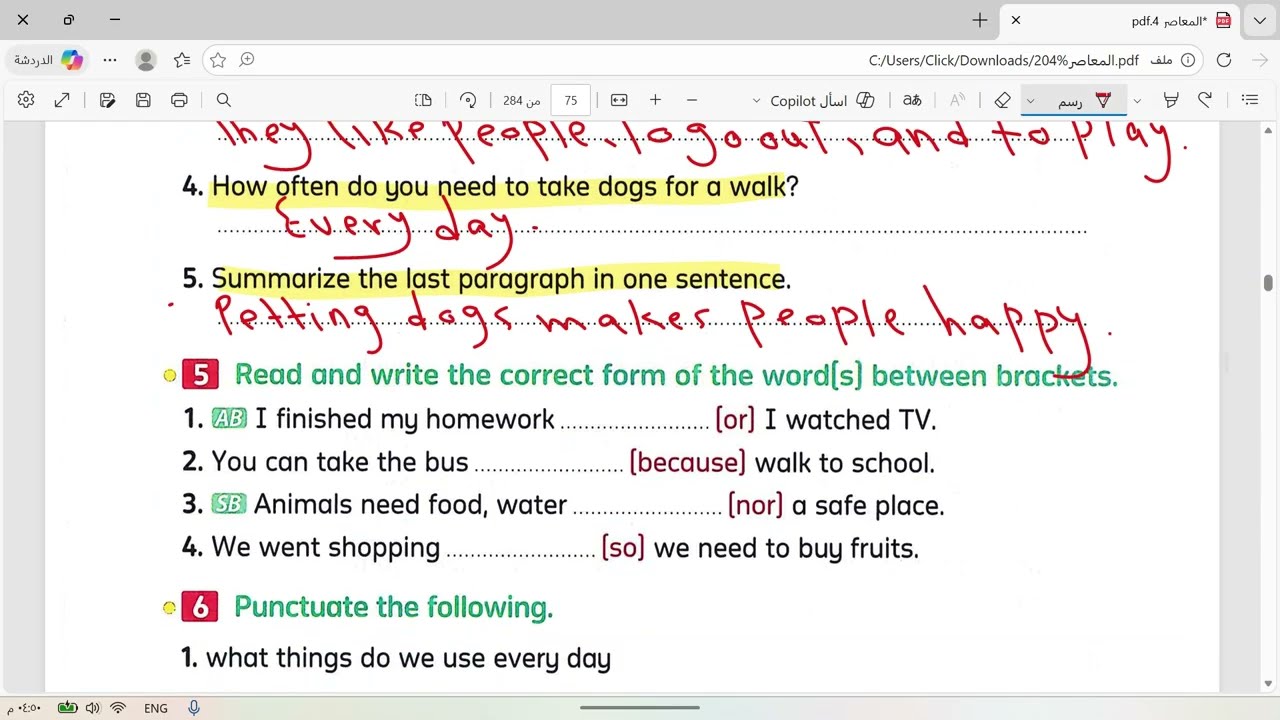 *المعاصر 4.pdf
الدردشة
ملف
C:/Users/Click/Downloads/204%المعاصر.pdf
75
من 284
اسأل Copilot
رسم
They like people, to go out, and to play.
4. How often do you need to take dogs for a walk?
Every day.
5. Summarize the last paragraph in one sentence.
Petting dogs makes people happy.
5 Read and write the correct form of the word(s) between brackets.
1. AB I finished my homework ........................ (or) I watched TV.
2. You can take the bus ........................ (because) walk to school.
3. SB Animals need food, water ........................ (nor) a safe place.
4. We went shopping ........................ (so) we need to buy fruits.
6 Punctuate the following.
1. what things do we use every day
ENG
٠٤:٥٠ م